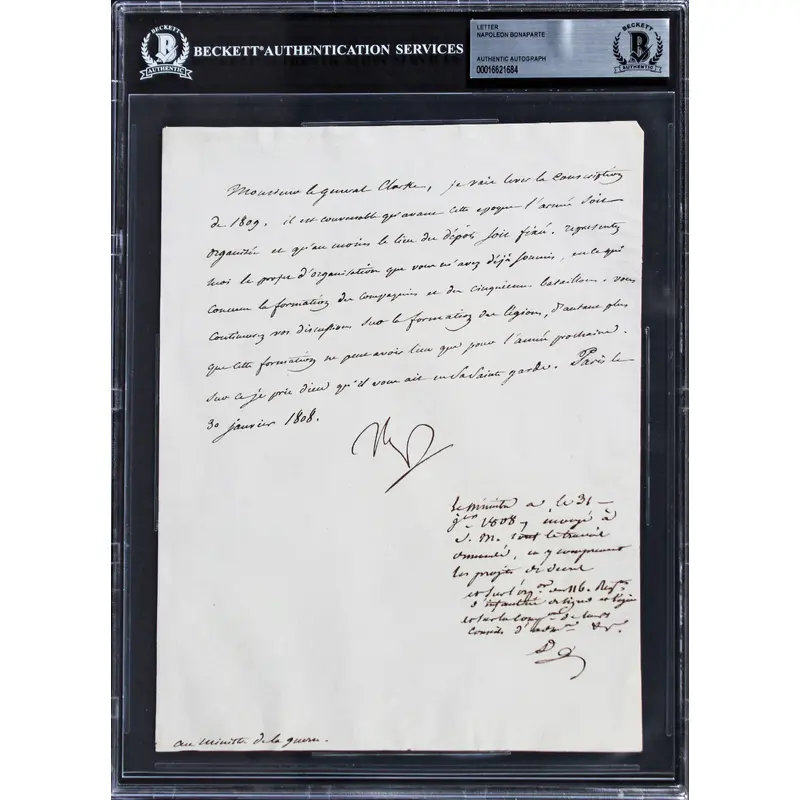 BECKETT
B
AUTHENTIC
BECKETT® AUTHENTICATION SERVICES
LETTER
NAPOLEON BONAPARTE
AUTHENTIC AUTOGRAPH
00016621684
BECKETT
B
AUTHENTIC
Monsieur le général Clarke, je vais lever la conscription
de 1809. il est convenable qu'avant cette époque l'armée soit
organisée et qu'au moins le lieu des dépôts soit fixé. représentez
moi le projet d'organisation que vous m'avez déjà soumis, en ce qui
concerne la formation des compagnies et des cinquièmes bataillons. vous
continuerez vos discussions sur la formation des légions, d'autant plus
que cette formation ne peut avoir lieu que pour l'année prochaine.
sur ce je prie dieu qu'il vous ait en sa sainte garde. Paris le
30 janvier 1808.
Nap
le ministre a, le 31
1808, envoyé à
S. M. tout le travail
demandé, en y comprenant
les projets de décret
et sur l'org.on des 116. Reg.ts
d'infanterie de ligne et légère
et sur la de leurs
Conseils d'adm.on &c.
au ministre de la guerre.